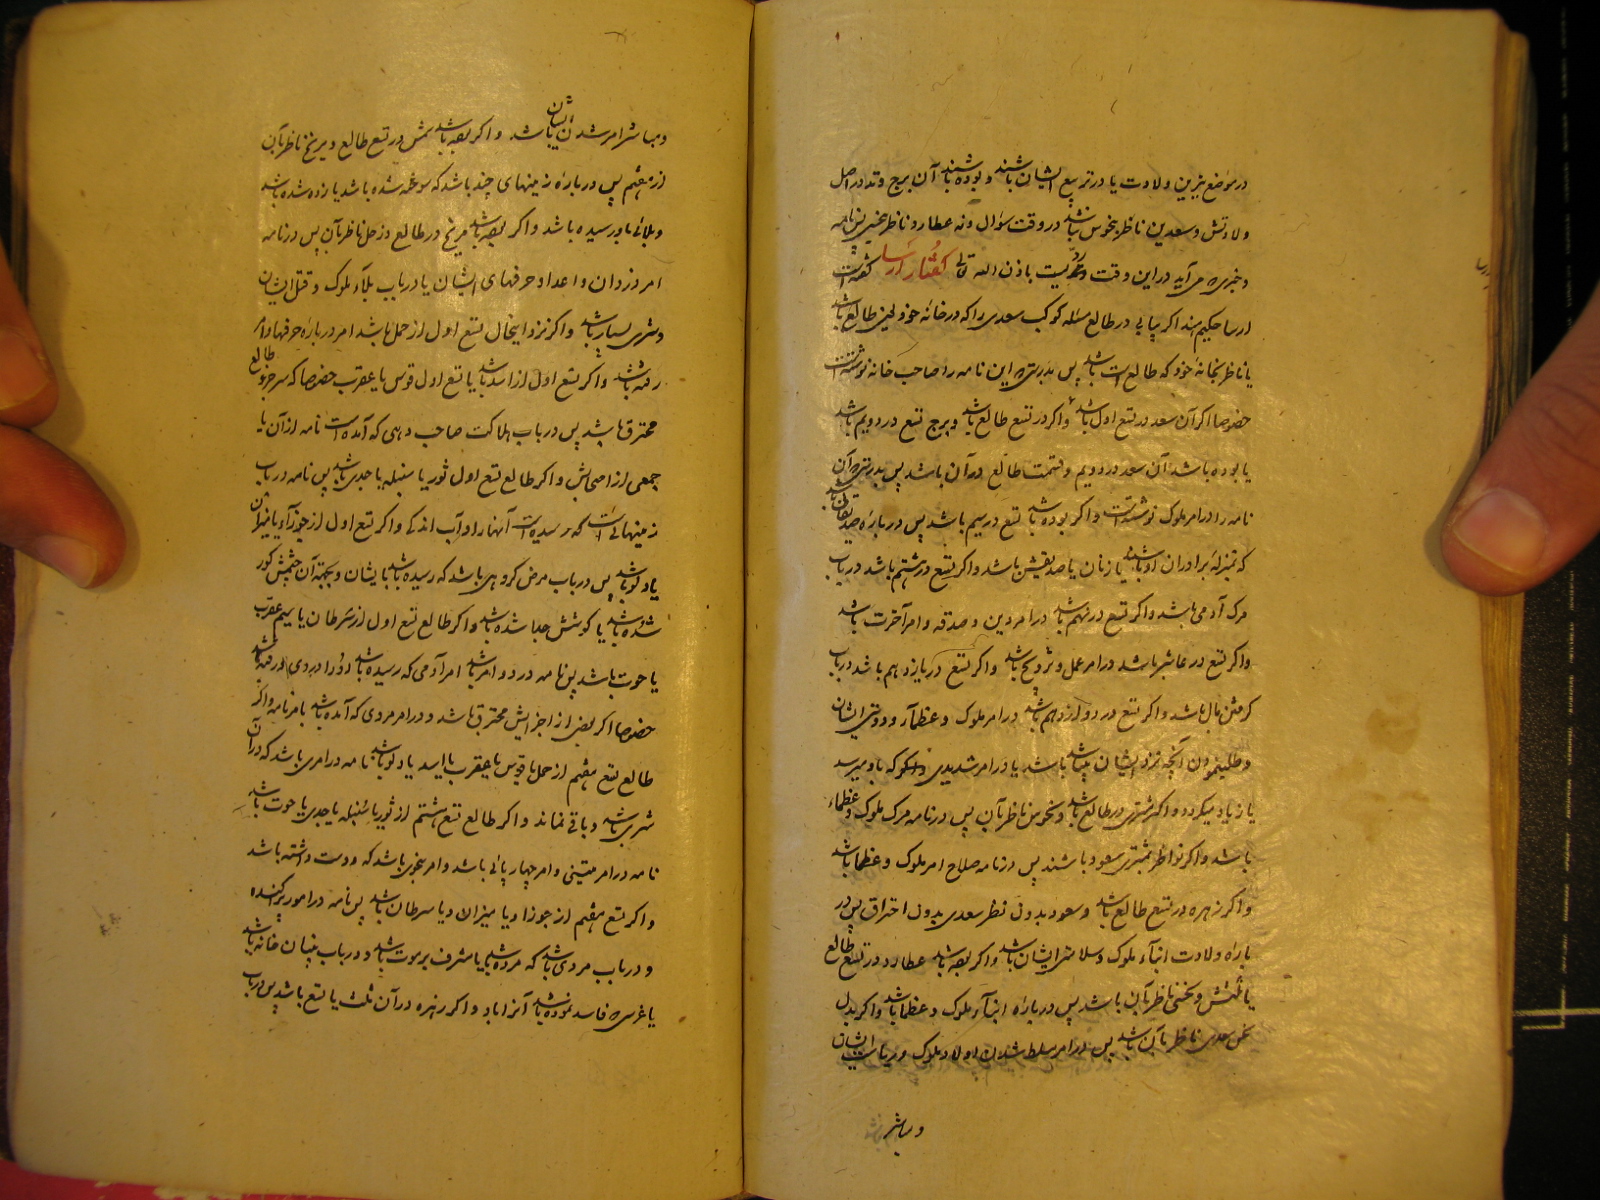 در مواضع نیرین ولادت یا در تربیع ایشان باشند و بوده باشند آن برج وتد در اصل
ولادتش و سعدین ناظر بنحوس باشند در وقت سؤال و نه عطارد و ناظر نحسین پس نامه
و خبری که می آید در این وقت بد نیست باذن الله تعالی گفتار ارسا گفته است
ارسا حکیم هند اگر بیابی در طالع مسئله کوکب سعدی را که در خانه خود یعنی طالع باشد
یا ناظر بخانه خود که طالع است باشد پس بدرستی که این نامه را صاحب خانه نوشته است
خصوصا اگر آن سعد در تسع اول باشد و اگر در تسع طالع باشد و برج تسع در دویم باشد
یا بوده باشد آن سعد در دویم و قسمت طالع در آن باشد پس بدرستی که آن
نامه را در امر ملوک نوشته است و اگر بوده باشد تسع در سیم باشد پس درباره صدیقان باشد
که بمنزله برادران او باشد یا زنان یا صدیقش باشد و اگر تسع در هشتم باشد در باب
مرک آدمی باشد و اگر تسع در نهم باشد در امر دین و صدقه و امر آخرت باشد
و اگر تسع در عاشر باشد در امر عمل و تزویج باشد و اگر تسع در یازدهم باشد در باب
گرفتن مال باشد و اگر تسع در دوازدهم باشد در امر ملوک و عظمآء و دوستی ایشان
و طلب نمودن آنچه نزد ایشان باشد یا در امر شدیدی که باو میرسد
یا زیاد میکردد و اگر مشتری در طالع باشد و نحوس ناظر بآن پس در نامه مرک ملوک و عظماء
باشد و اگر نواظر مشتری سعود باشند پس در نامه صلاح امر ملوک و عظما باشد
و اگر زهره در تسع طالع باشد و سعود بدون نظر سعدی بدون احتراق پس در
باره ولادت ابنآء ملوک و سلامتی ایشان باشد و اگر بوده باشد عطارد در تسع طالع
یا ثلثش و نحسی ناظر بآن باشد پس درباره ابنآء ملوک و عظما باشد و اگر بدل
نحس سعدی ناظر بآن باشد پس در امر مسلط شدن اولاد ملوک و ریاست ایشان
و مباشر
و مباشر امر شدن ایشان باشد و اگر بوده باشد شمس در تسع طالع و مریخ ناظر بآن
از هفتم پس درباره زمینهای چند باشد که سوخته شده باشد یا زده شده باشد
و بلائی باو رسیده باشد و اگر بوده باشد مریخ در طالع و زحل ناظر بآن پس در نامه
امر دزدان و اعدا و حرفهای ایشان یا در باب بلآء ملوک و قتل ایشان
و شری بسیار باشد و اگر نزد اینحال تسع اول از حمل باشد امر درباره حرفها و امر
رفته باشد و اگر تسع اول از اسد باشد یا تسع اول قوس یا عقرب خصوصا که سر جزو طالع
محترق باشد پس در باب هلاکت صاحب دهی که آمده است نامه از آن یا
جمعی از اصحابش و اگر طالع تسع اول ثور یا سنبله یا جدی باشد پس نامه در باب
زمینهائی است که رسیده است آنها را و آب اندکی و اگر تسع اول از جوزآء یا میزان
یا دلو باشد پس در باب مرض گروهی باشد که رسیده باشد بایشان و بجهة آن چشمش کور
شده باشد یا گوشش جدا شده باشد و اگر طالع تسع اول از سرطان یا سیم عقرب
یا حوت باشد پس نامه در دو امر باشد امر آدمی که رسیده باشد او را دردی
خصوصا اگر بعض از اجزایش محترق باشد و در امر مردی که آمده باشد با مر نامه و اگر
طالع تسع هفتم از حمل یا قوس یا عقرب یا اسد یا دلو باشد نامه در امری باشد که در آن
شری باشد و باقی نماند و اگر طالع تسع هشتم از ثور یا سنبله یا جدی یا حوت باشد
نامه در امر متینی و امر چهارپائی باشد و امر بخوبی باشد که دوست داشته باشد
و اگر تسع هفتم از جوزا و یا میزان و یا سرطان باشد پس نامه در امور پراکنده
و در باب مردی باشد که مرده باشد یا مشرف بر موت باشد و در باب بنیان خانه باشد
یا غرسی که فاسد نموده باشد آنرا باد و اگر زهره در آن ثلث یا تسع باشد پس در باب